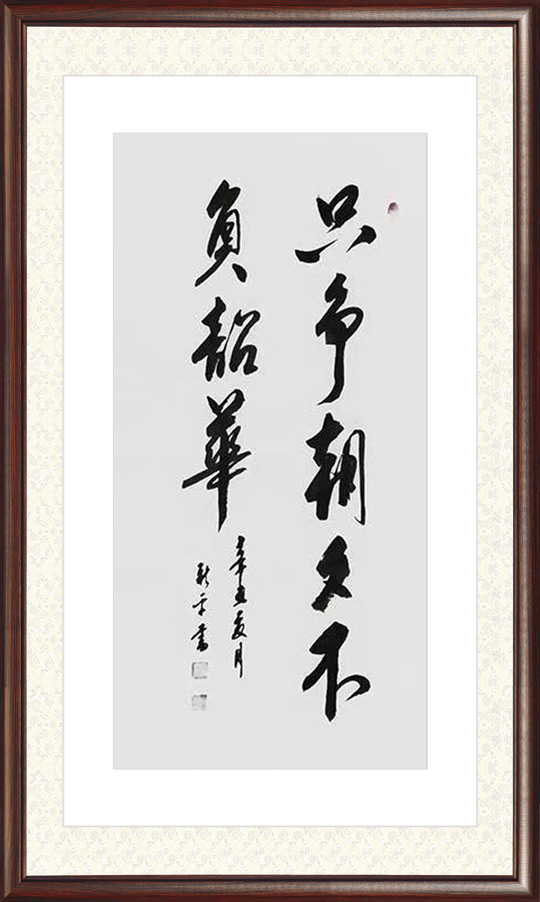 只争朝夕不
负韶華
辛丑夏月
新平書